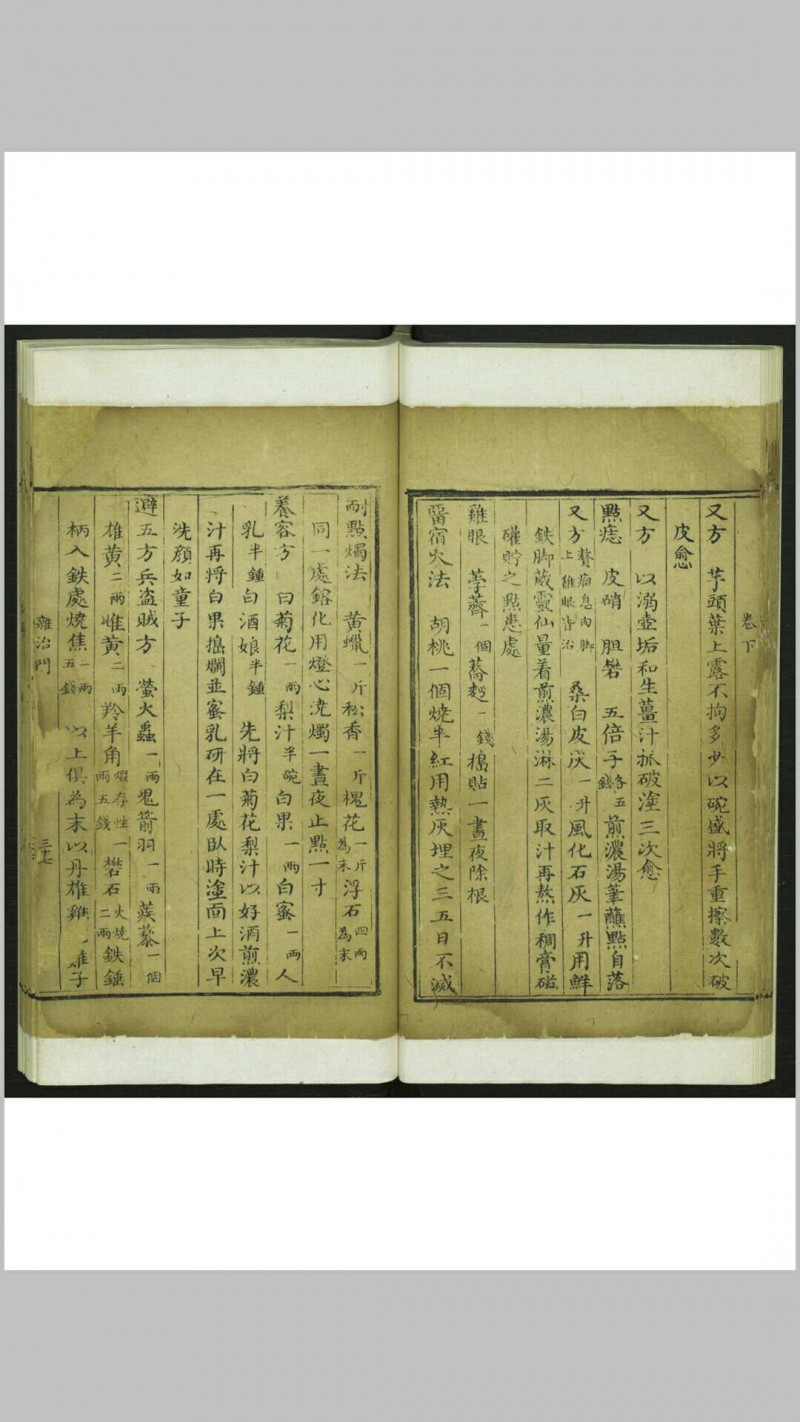 卷下
又方 芋頭葉上露不拘多少以碗盛將手重擦數次破
皮愈
又方 以溺壺垢和生薑汁抓破塗三次愈
點痣 皮硝 胆礬 五倍子各五錢煎濃湯筆蘸點自落
又方贅瘤息肉脚上雞眼皆治 桑白皮灰一升風化石灰一升用鮮
鉄脚葳靈仙量着煎濃湯淋二灰取汁再熬作稠膏磁
礶貯之點患處
雞眼 荸薺一個蕎麪一錢搗貼一晝夜除根
留宿火法 胡桃一個燒半紅用熱灰埋之三五日不滅
耐點燭法 黄蠟一斤松香一斤槐花一斤為末浮石四兩為末
同一處鎔化用燈心澆燭一晝夜止點一寸
養容方 曰菊花一兩梨汁半碗白果一兩白蜜一兩人
乳半鍾白酒娘半鍾 先將白菊花梨汁以好酒煎濃
汁再將白果搗爛並蜜乳研在一處臥時塗面上次早
洗顔如童子
避五方兵盗賊方 螢火蟲一兩鬼箭羽一兩蒺藜一個
雄黄二兩雌黄二兩羚羊角煆存性一兩五錢礬石火燒二兩鉄錘
柄入鉄處燒焦一兩五錢 以上俱為末以丹雄雞 子
雜治門
三十七